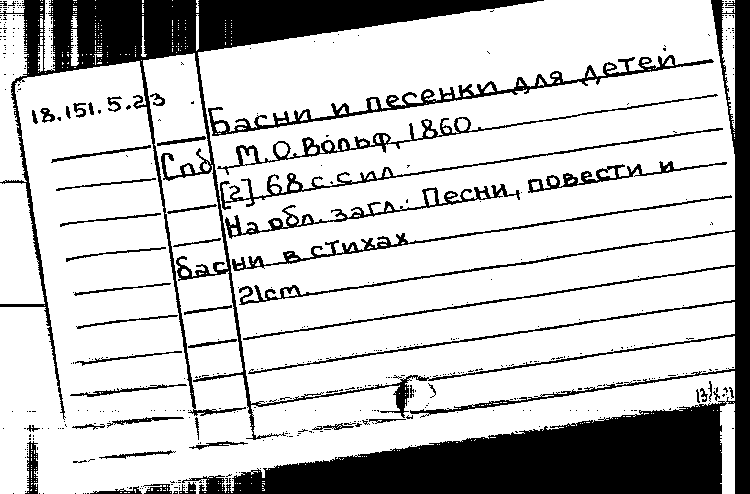 18.151.5.23
Басни и песенки для детей
Спб., М.О.Вольф, 1860.
[2] 68 с. с ил.
На обл. загл.: Песни, повести и
басни в стихах.
21cm.